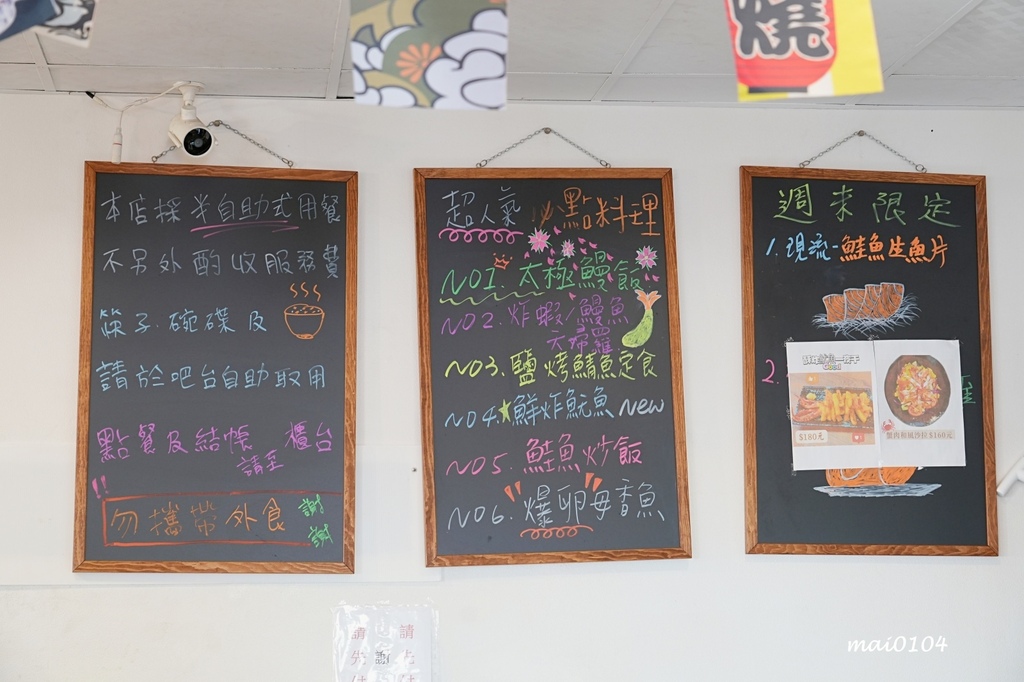 燒
本店採半自助式用餐
不另外酌收服務費
筷子.碗碟及
請於吧台自助取用
點餐及結帳 櫃台
請至
!!
勿攜帶外食
謝謝
超人氣
點料理
NO1.太極鰻飯
NO2.炸蝦/鰻魚
天婦羅
NO3.鹽烤鯖魚定食
NO4.★鮮炸魷魚 New
NO5.鮭魚炒飯
NO6.爆卵母香魚
週末限定
1.現流-鮭魚生魚片
2.
Good
$180元
蟹肉和風沙拉 $160元
請 請
先 先
謝
mai0104